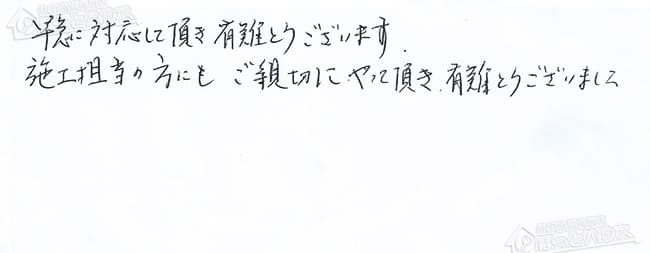 早急に対応して頂き有難とうございます.
施工担当の方にも ご親切に やって頂き、有難とうございました